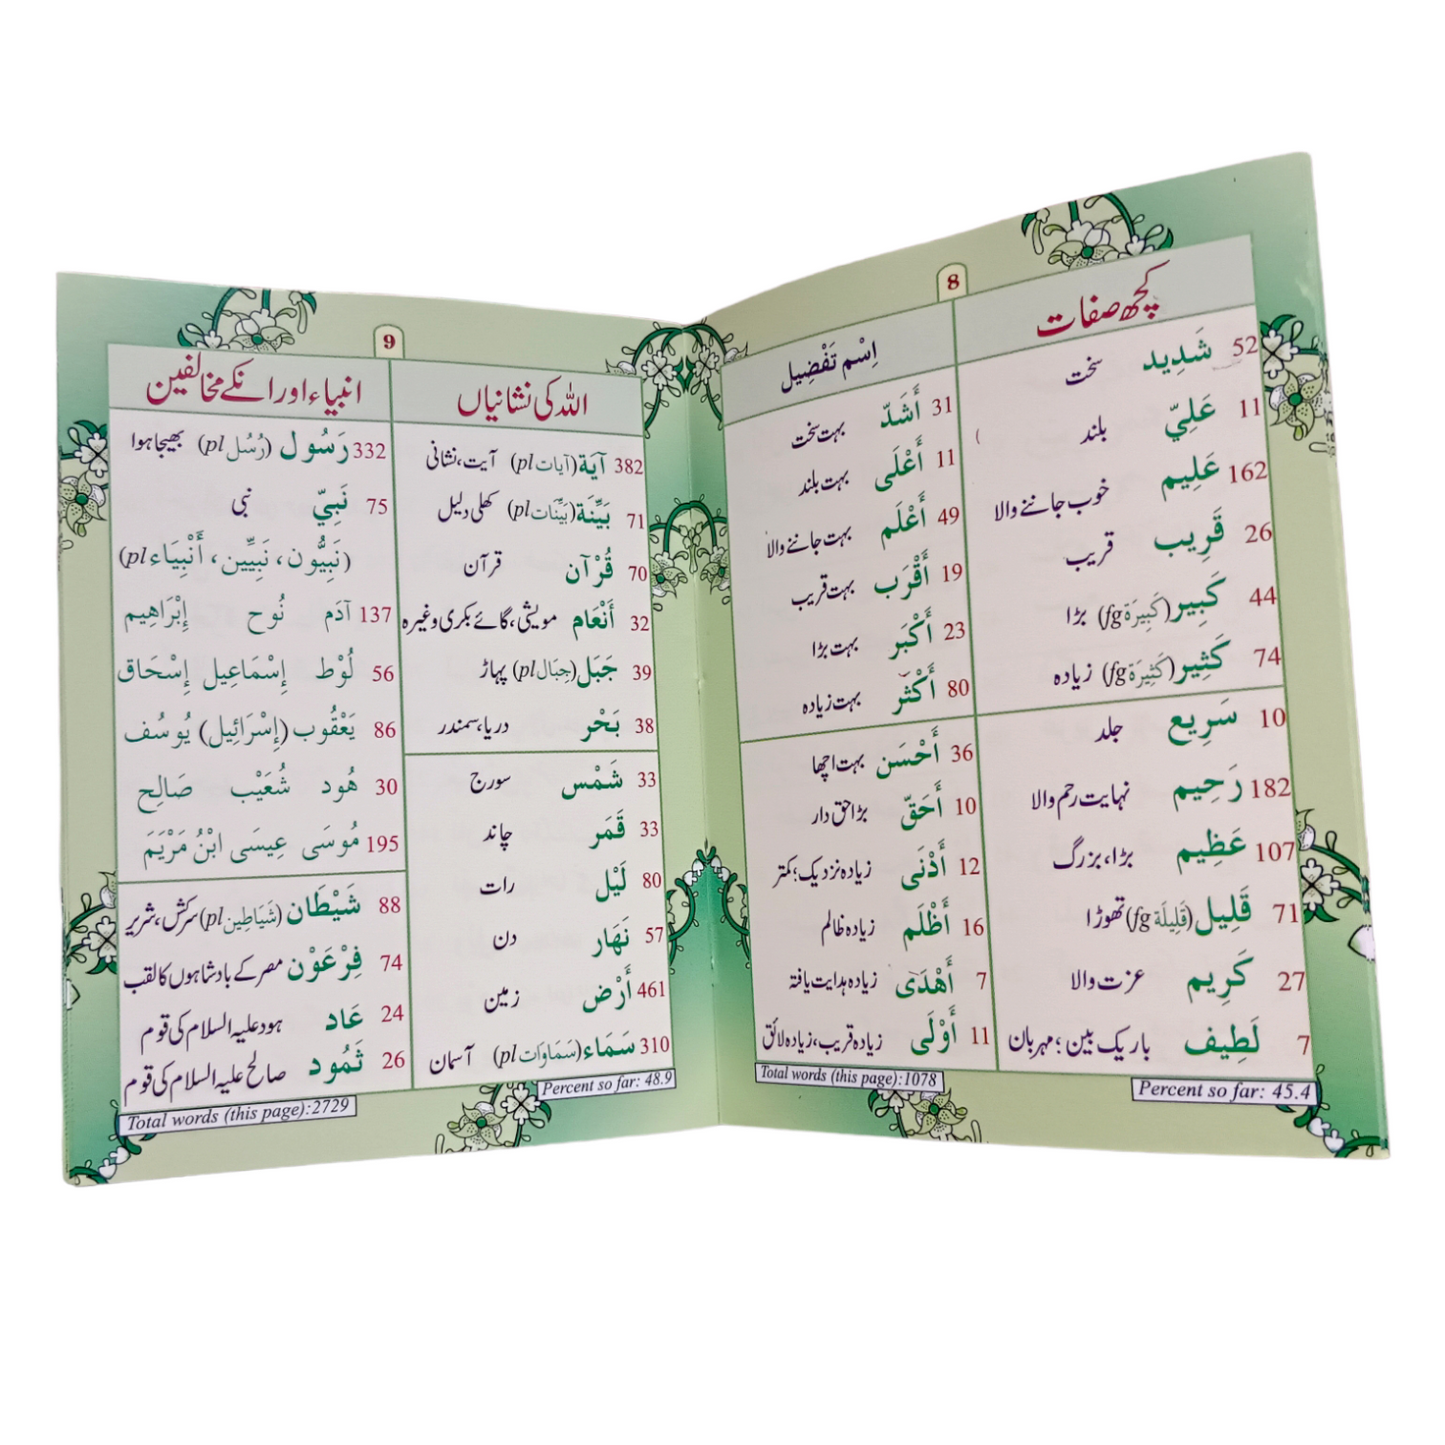 8
کچھ صفات
52 شَدِيد سخت
11 عَلِيّ بلند
162 عَلِيم خوب جاننے والا
26 قَرِيب قریب
44 كَبِير (كَبِيرَة fg) بڑا
74 كَثِير (كَثِيرَة fg) زیادہ
10 سَرِيع جلد
182 رَحِيم نہایت رحم والا
107 عَظِيم بڑا، بزرگ
71 قَلِيل (قَلِيلَة fg) تھوڑا
27 كَرِيم عزت والا
7 لَطِيف باریک بین ؛ مہربان
Percent so far: 45.4
اِسْم تَفْضِيل
31 أَشَدّ بہت سخت
11 أَعْلَى بہت بلند
49 أَعْلَم بہت جاننے والا
19 أَقْرَب بہت قریب
23 أَكْبَر بہت بڑا
80 أَكْثَر بہت زیادہ
36 أَحْسَن بہت اچھا
10 أَحَقّ بڑا حق دار
12 أَدْنَى زیادہ نزدیک؛ کمتر
16 أَظْلَم زیادہ ظالم
7 أَهْدَى زیادہ ہدایت یافتہ
11 أَوْلَى زیادہ قریب، زیادہ لائق
Total words (this page):1078
9
اللہ کی نشانیاں
382 آيَة (آيات pl) آیت، نشانی
71 بَيِّنَة (بَيِّنَات pl) کھلی دلیل
70 قُرْآن قرآن
32 أَنْعَام مویشی، گائے بکری وغیرہ
39 جَبَل (جِبَال pl) پہاڑ
38 بَحْر دریا، سمندر
33 شَمْس سورج
33 قَمَر چاند
80 لَيْل رات
57 نَهَار دن
461 أَرْض زمین
310 سَمَاء (سَمَاوَات pl) آسمان
Percent so far: 48.9
انبیاء اور انکے مخالفین
332 رَسُول (رُسُل pl) بھیجا ہوا
75 نَبِيّ نبی
(نَبِيُّون، نَبِيِّين، أَنْبِيَاء pl)
137 آدَم نُوح إِبْرَاهِيم
56 لُوْط إِسْمَاعِيل إِسْحَاق
86 يَعْقُوب (إِسْرَائِيل) يُوسُف
30 هُود شُعَيْب صَالِح
195 مُوسَى عِيسَى ابْنُ مَرْيَمَ
88 شَيْطَان (شَيَاطِين pl) سرکش، شریر
74 فِرْعَوْن مصر کے بادشاہوں کا لقب
24 عَاد ہود علیہ السلام کی قوم
26 ثَمُود صالح علیہ السلام کی قوم
Total words (this page):2729